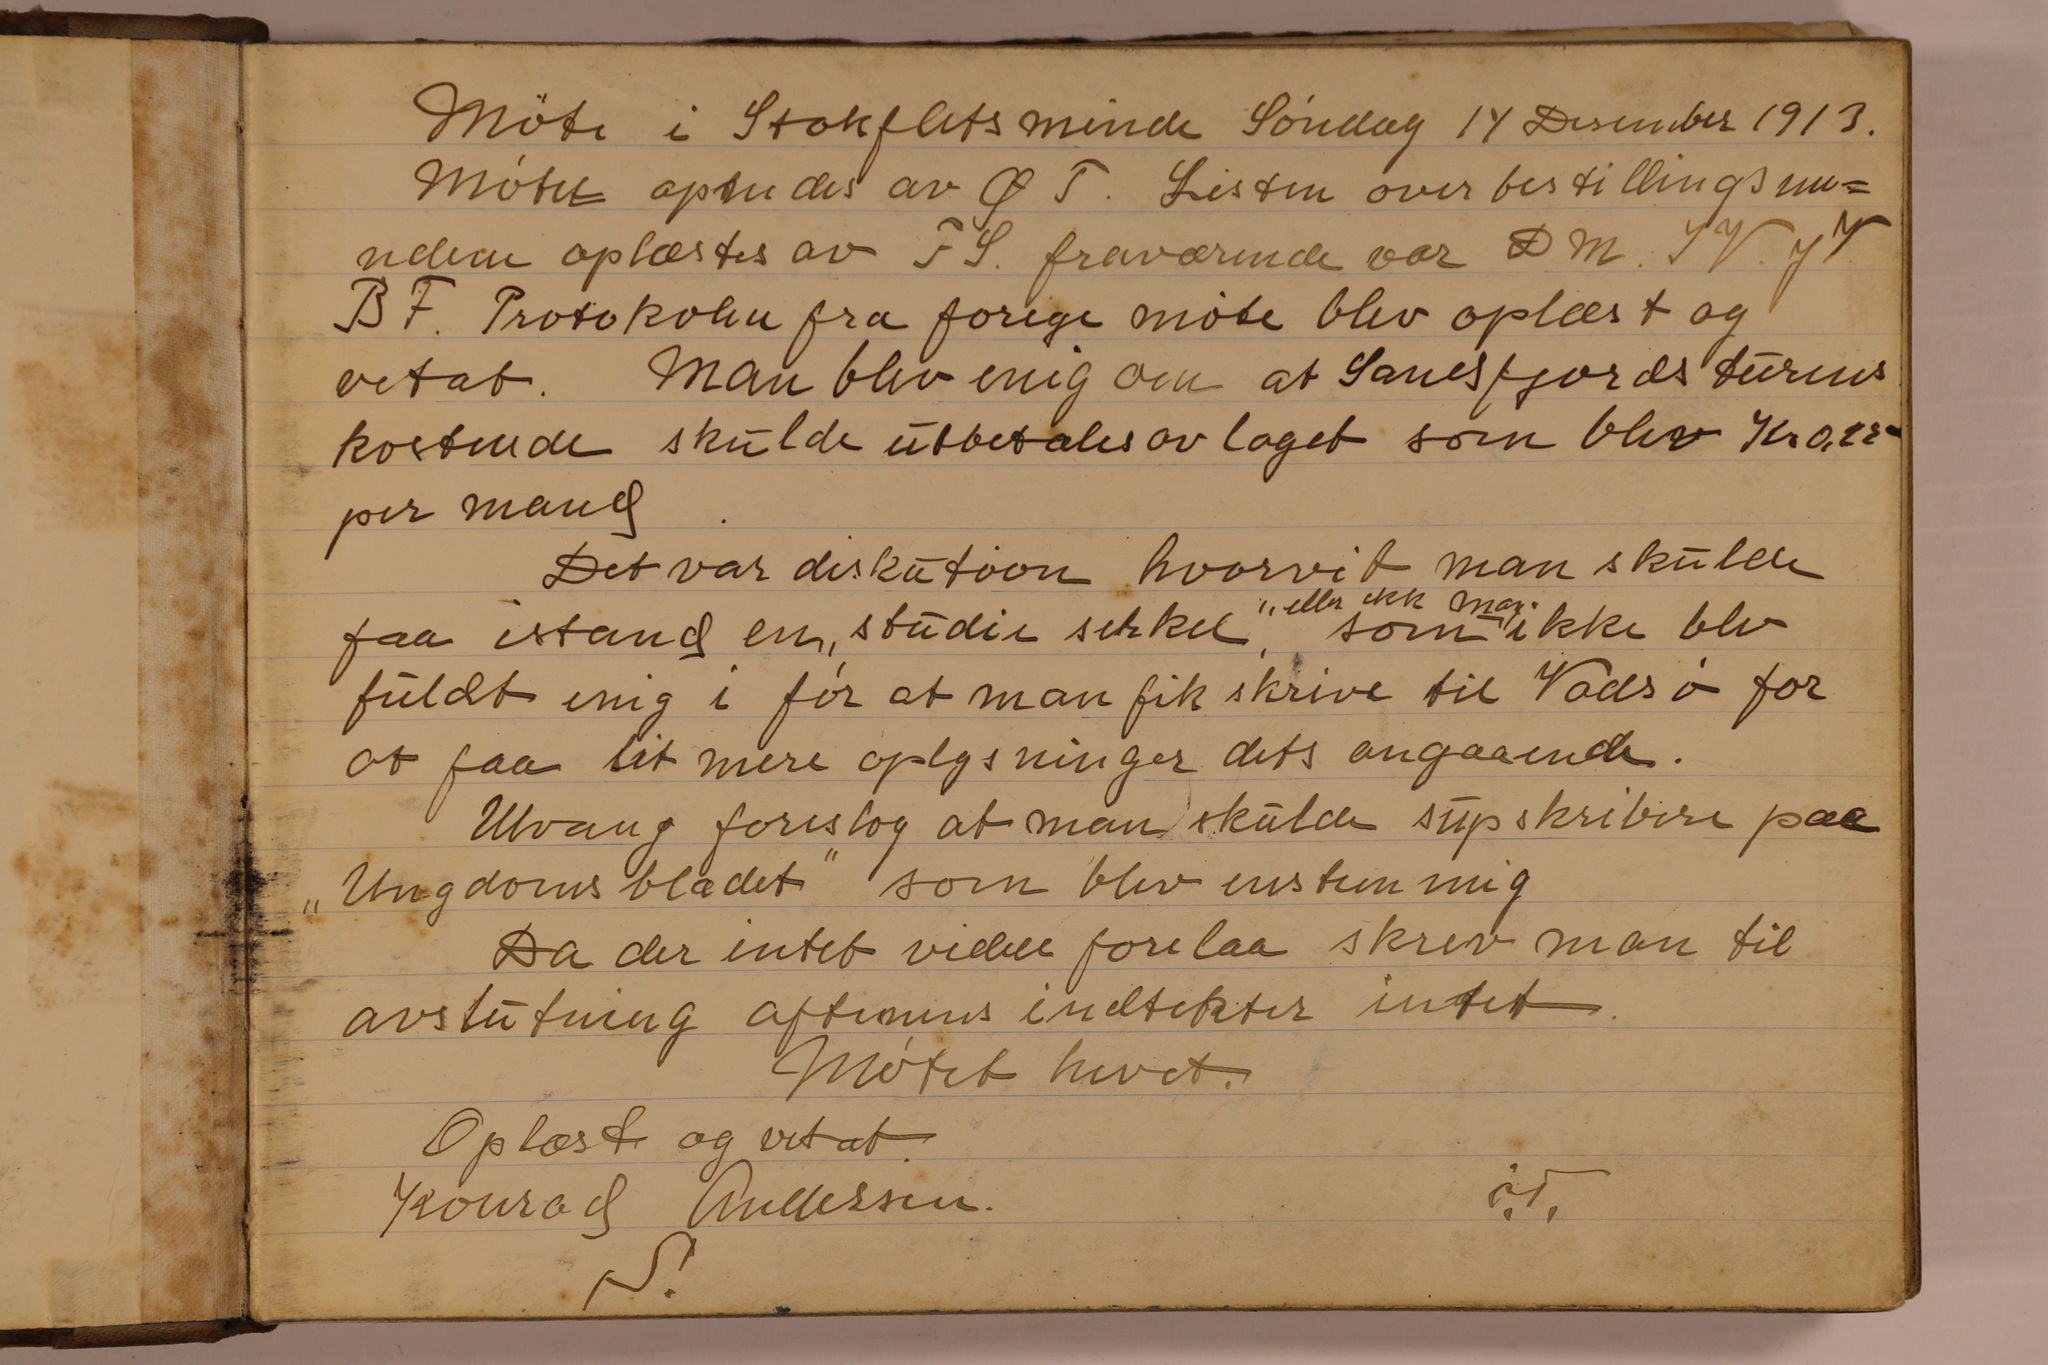 Möte i Stokfletsminde Söndag 14 Desember 1913.
Mötet opnedes av Ø T. Listen over bestillingsme=
ndene oplæstes av F S. fraværende var D M. I V. J V
B F. Protokolen fra forige möte blev oplæst og
vetat. Man blev enig om at Sanesfjords turens
kostende skulde utbetales av laget som blev Kr 0,22
per mand.
Det var diskution hvorvit man skulde
faa istand en „studie serkel" „eller ikk man" som ikke blev
fuldt enig i för at man fik skrive til Vadsö for
at faa lit mere oplysninger dets angaaende.
Ulvang foreslog at man skulde supskribere paa
„Ungdomsbladet" som blev enstemmig
Da der intet videre forelaa skrev man til
avslutning aftenens indtekter intet.
Mötet hevet.
Oplæst og vetat.
Konrad Andersen. ö.T.
S!